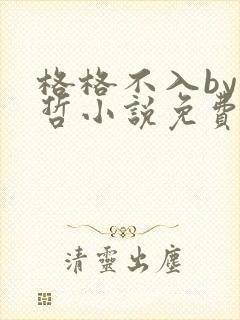 格格不入by
哲小說免費
清靈出塵